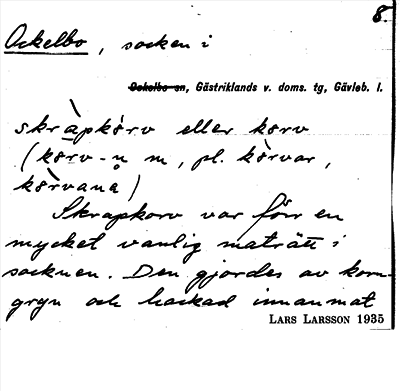 8.
Ockelbo, socken i
Ockelbo sn, Gästriklands v. doms. tg, Gävleb. l.
skràpkòrv eller korv
(kòrv-n̥ m, pl. kòrvar,
kòrvana)
Skrapkorv var förr en
mycket vanlig maträtt i
socknen. Den gjordes av korn-
gryn och hackad innanmat
LARS LARSSON 1935